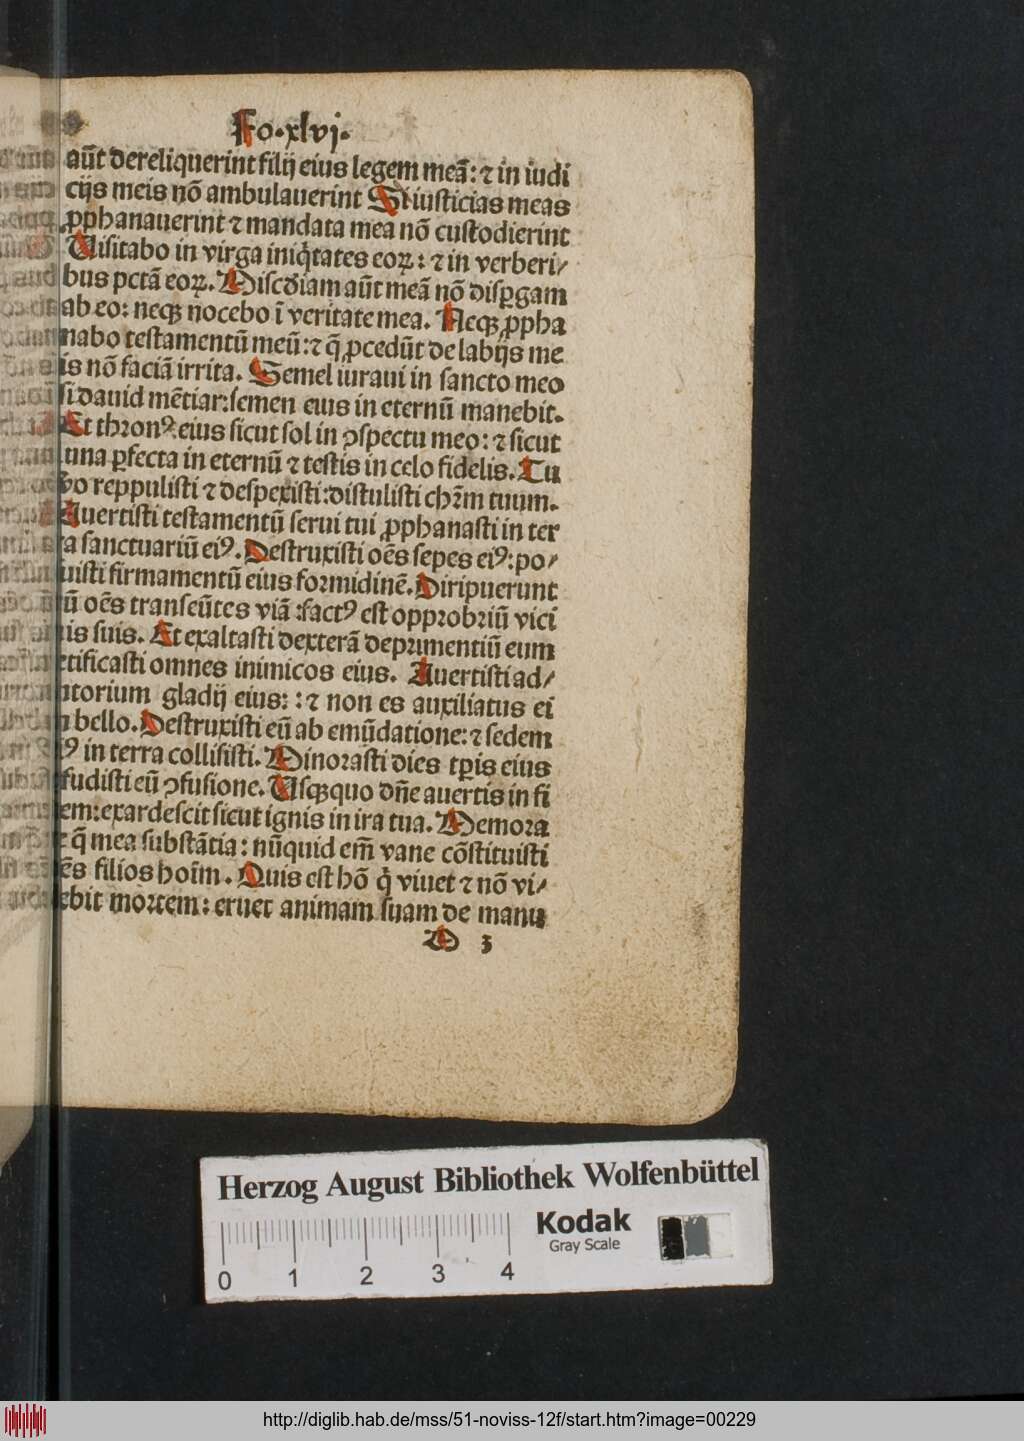 Fo.xlvj.
aūt dereliquerint filij eius legem meā: ⁊ in iudi
cijs meis nō ambulauerint Si iusticias meas
ꝓphanauerint ⁊ mandata mea nō custodierint
Uisitabo in virga iniq̇tates eoꝝ: ⁊ in verberi⸗
bus pctā eoꝝ. Miscd̄iam aūt meā nō disꝑgam
ab eo: neqꝫ nocebo ī veritate mea. Neqꝫ ꝓpha
nabo testamentū meū: ⁊ q̄ ꝓcedūt de labijs me
is nō faciā irrita. Semel iuraui in sancto meo
si dauid mētiar: semen eius in eternū manebit.
Et thronꝰ eius sicut sol in ꝯspectu meo: ⁊ sicut
luna ꝑfecta in eternū ⁊ testis in celo fidelis. Tu
vo reppulisti ⁊ despexisti: distulisti chr̄m tuum.
Auertisti testamentū serui tui ꝓphanasti in ter
ra sanctuariū eiꝰ. Destruxisti oēs sepes eiꝰ: po⸗
uisti firmamentū eius formidinē. Diripuerunt
ū oēs transeūtes viā: factꝰ est opprobriū vici
nis suis. Et exaltasti dexterā deprimentiū eum
etificasti omnes inimicos eius. Auertisti ad⸗
utorium gladij eius: : ⁊ non es auxiliatus ei
n bello. Destruxisti eū ab emūdatione: ⁊ sedem
ꝰ in terra collisisti. Minorasti dies tꝑis eius
fudisti eū ꝯfusione. Usqꝫquo dn̄e auertis in fi
em: exardescit sicut ignis in ira tua. Memora
e q̄ mea substātia: nūquid em̄ vane cōstituisti
ēs filios hoīm. Quis est hō q̇ viuet ⁊ nō vi⸗
ebit mortem: eruet animam suam de manu
M 3
Herzog August Bibliothek Wolfenbüttel
Kodak
Gray Scale
0 1 2 3 4
http://diglib.hab.de/mss/51-noviss-12f/start.htm?image=00229